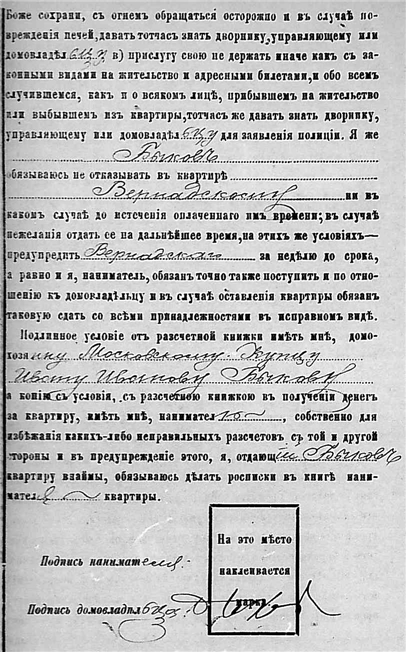 Боже сохрани, съ огнемъ обращаться осторожно и въ случаѣ по-
врежденія печей, давать тотчасъ знать дворнику, управляющему или
домовладѣльцу в) прислугу свою не держать иначе какъ съ за-
конными видами на жительство и адресными билетами, и обо всемъ
случившемся, какъ и о всякомъ лицѣ, прибывшемъ на жительство
или выбывшемъ изъ квартиры, тотчасъ же давать знать дворнику,
управляющему или домовладѣльцу для заявленія полиціи. Я же
Быковъ
обязываюсь не отказывать въ квартирѣ
Вернадскому ни въ
какомъ случаѣ до истеченія оплаченнаго имъ времени; въ случаѣ
нежеланія отдать ее на дальнѣйшее время, на этихъ же условіяхъ—
предупредить Вернадскаго за недѣлю до срока,
а равно и я, наниматель, обязанъ точно также поступить и по отно-
шенію къ домовладѣльцу и въ случаѣ оставленія квартиры обязанъ
таковую сдать со всѣми принадлежностями въ исправномъ видѣ.
Подлинное условіе отъ разсчетной книжки имѣть мнѣ, домо-
хозяину Московскому Купцу
Ивану Иванову Быкову
а копію съ условія, съ разсчетною книжкою въ полученіи денегъ
за квартиру, имѣть мнѣ, нанимателю, собственно для
избѣжанія какихъ-либо неправильныхъ разсчетовъ съ той и другой
стороны и въ предупрежденіе этого, я, отдающій Быковъ
квартиру взаймы, обязываюсь дѣлать росписки въ книгѣ нани-
мателя квартиры.
На это мѣсто
наклеивается
марка.
Подпись нанимателя
Подпись домовладѣльца